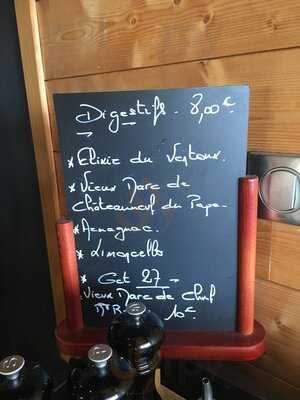 Digestifs. 8,00€
* Elixir du Ventoux.
* Vieux Marc de
Châteauneuf du Pape.
* Armagnac.
* Limoncello
* Get 27
Vieux Marc de Chnf
10€